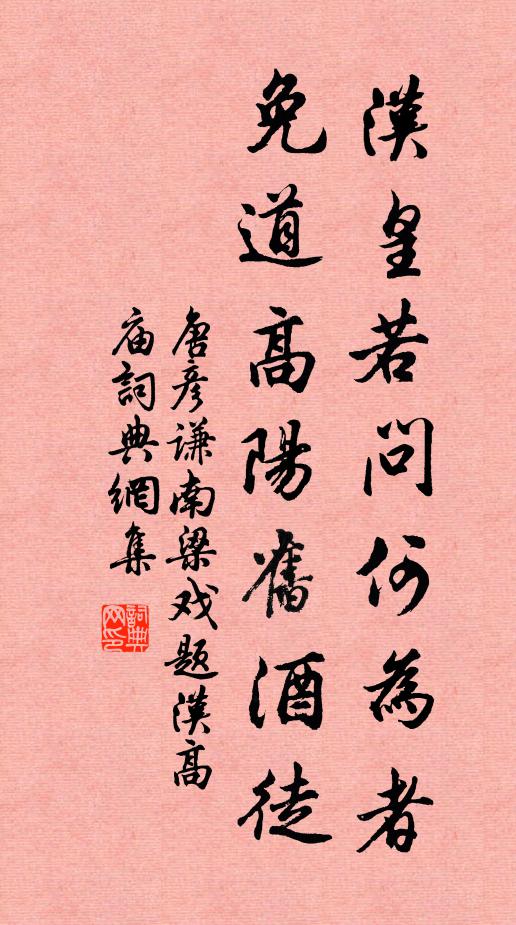 漢皇若問何為者
免道高陽舊酒徒
唐彥謙南梁戏题漢高
庙詞典網集
詞典网印